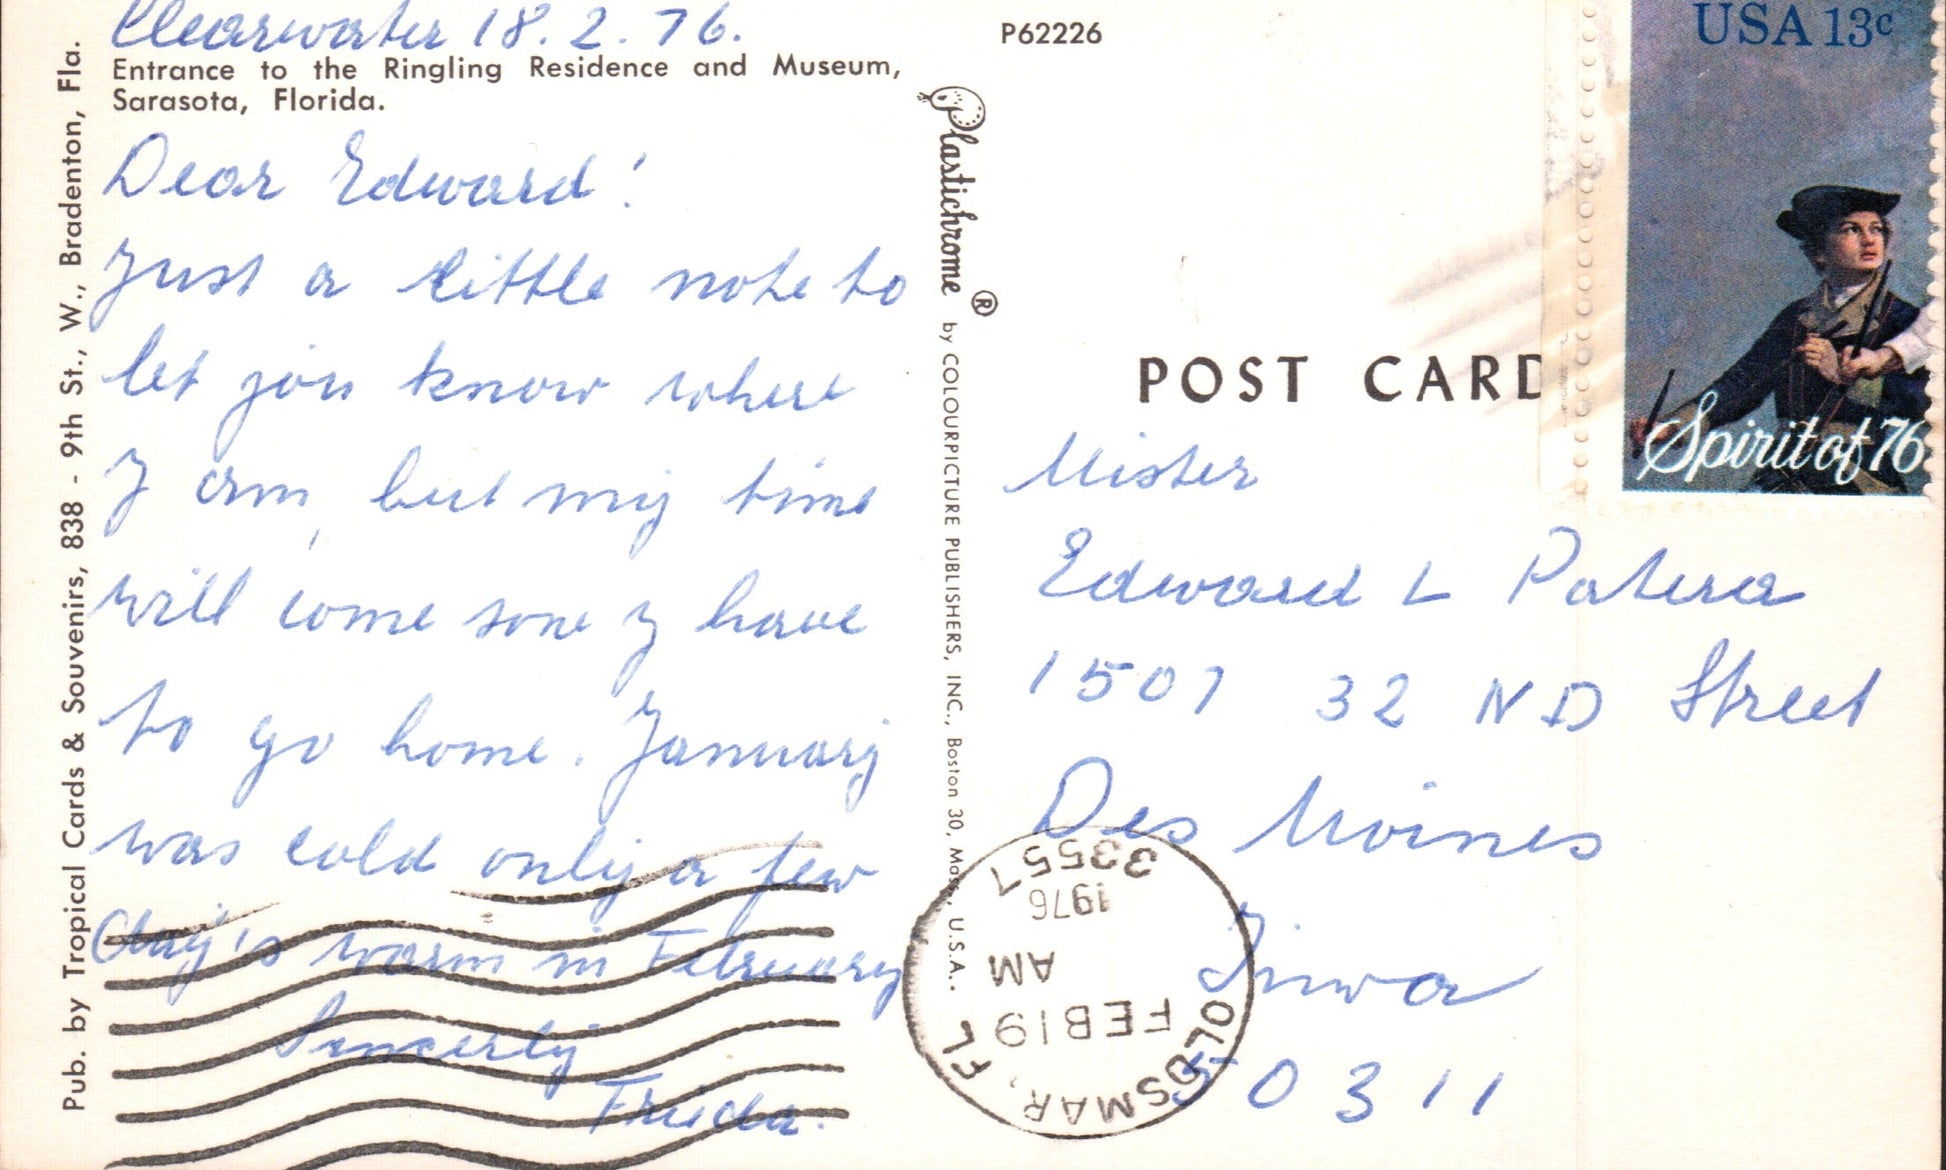 Clearwater 18. 2. 76.
Entrance to the Ringling Residence and Museum,
Sarasota, Florida.
Dear Edward!
Just a little note to
let you know where
I am, but my time
will come sone I have
to go home. January
was cold only a few
day's warm in February
Sincerly
Frieda.
Pub. by Tropical Cards & Souvenirs, 838 - 9th St., W., Bradenton, Fla.
Plastichrome ® by COLOURPICTURE PUBLISHERS, INC., Boston 30, Mass., U.S.A.
P62226
POST CARD
USA 13c
Spirit of 76
Mister
Edward L Patera
1507 32 ND Street
Des Moines
Iowa
50311
OLDSMAR, FL
FEB 19
AM
1976
33557